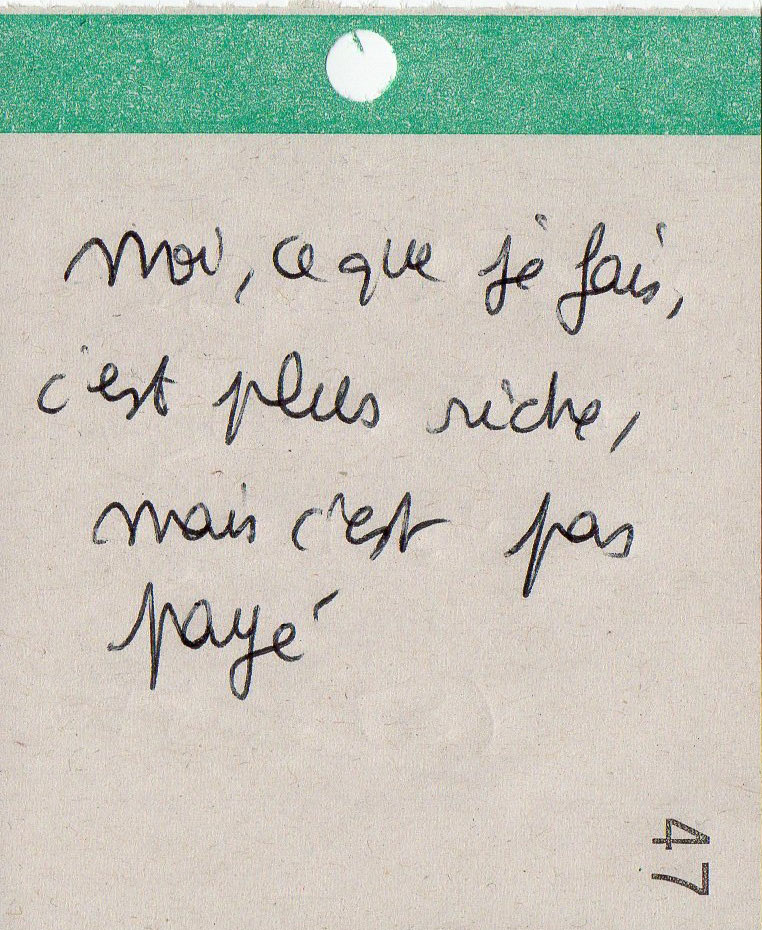 Moi, ce que je fais,
c'est plus riche,
mais c'est pas
payé
47